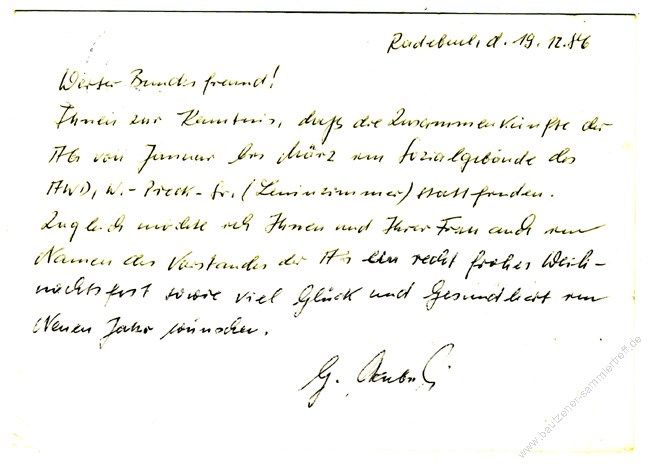 Radebeul, d. 19.12.86
Werter Bundesfreund!
Ihnen zur Kenntnis, daß die Zusammenkünfte der
AG von Januar bis März im Sozialgebäude des
AWD, W.-Pieck-Str. (Leninzimmer) stattfinden.
Zugleich möchte ich Ihnen und Ihrer Frau auch im
Namen des Vorstandes der AG ein recht frohes Weih-
nachtsfest sowie viel Glück und Gesundheit im
Neuen Jahr wünschen.
G.
www.bautzener-sammlertreff.de